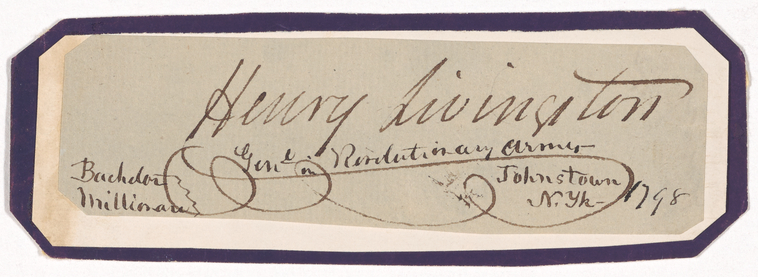 Henry Livingston
Genl in Revolutionary Armee
Bachelor
Millionare
Johnstown
N. Yk- 1798